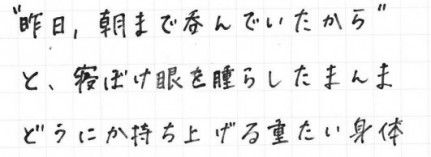 "昨日, 朝まで呑んでいたから"
と、寝ぼけ眼を腫らしたまんま
どうにか持ち上げる重たい身体